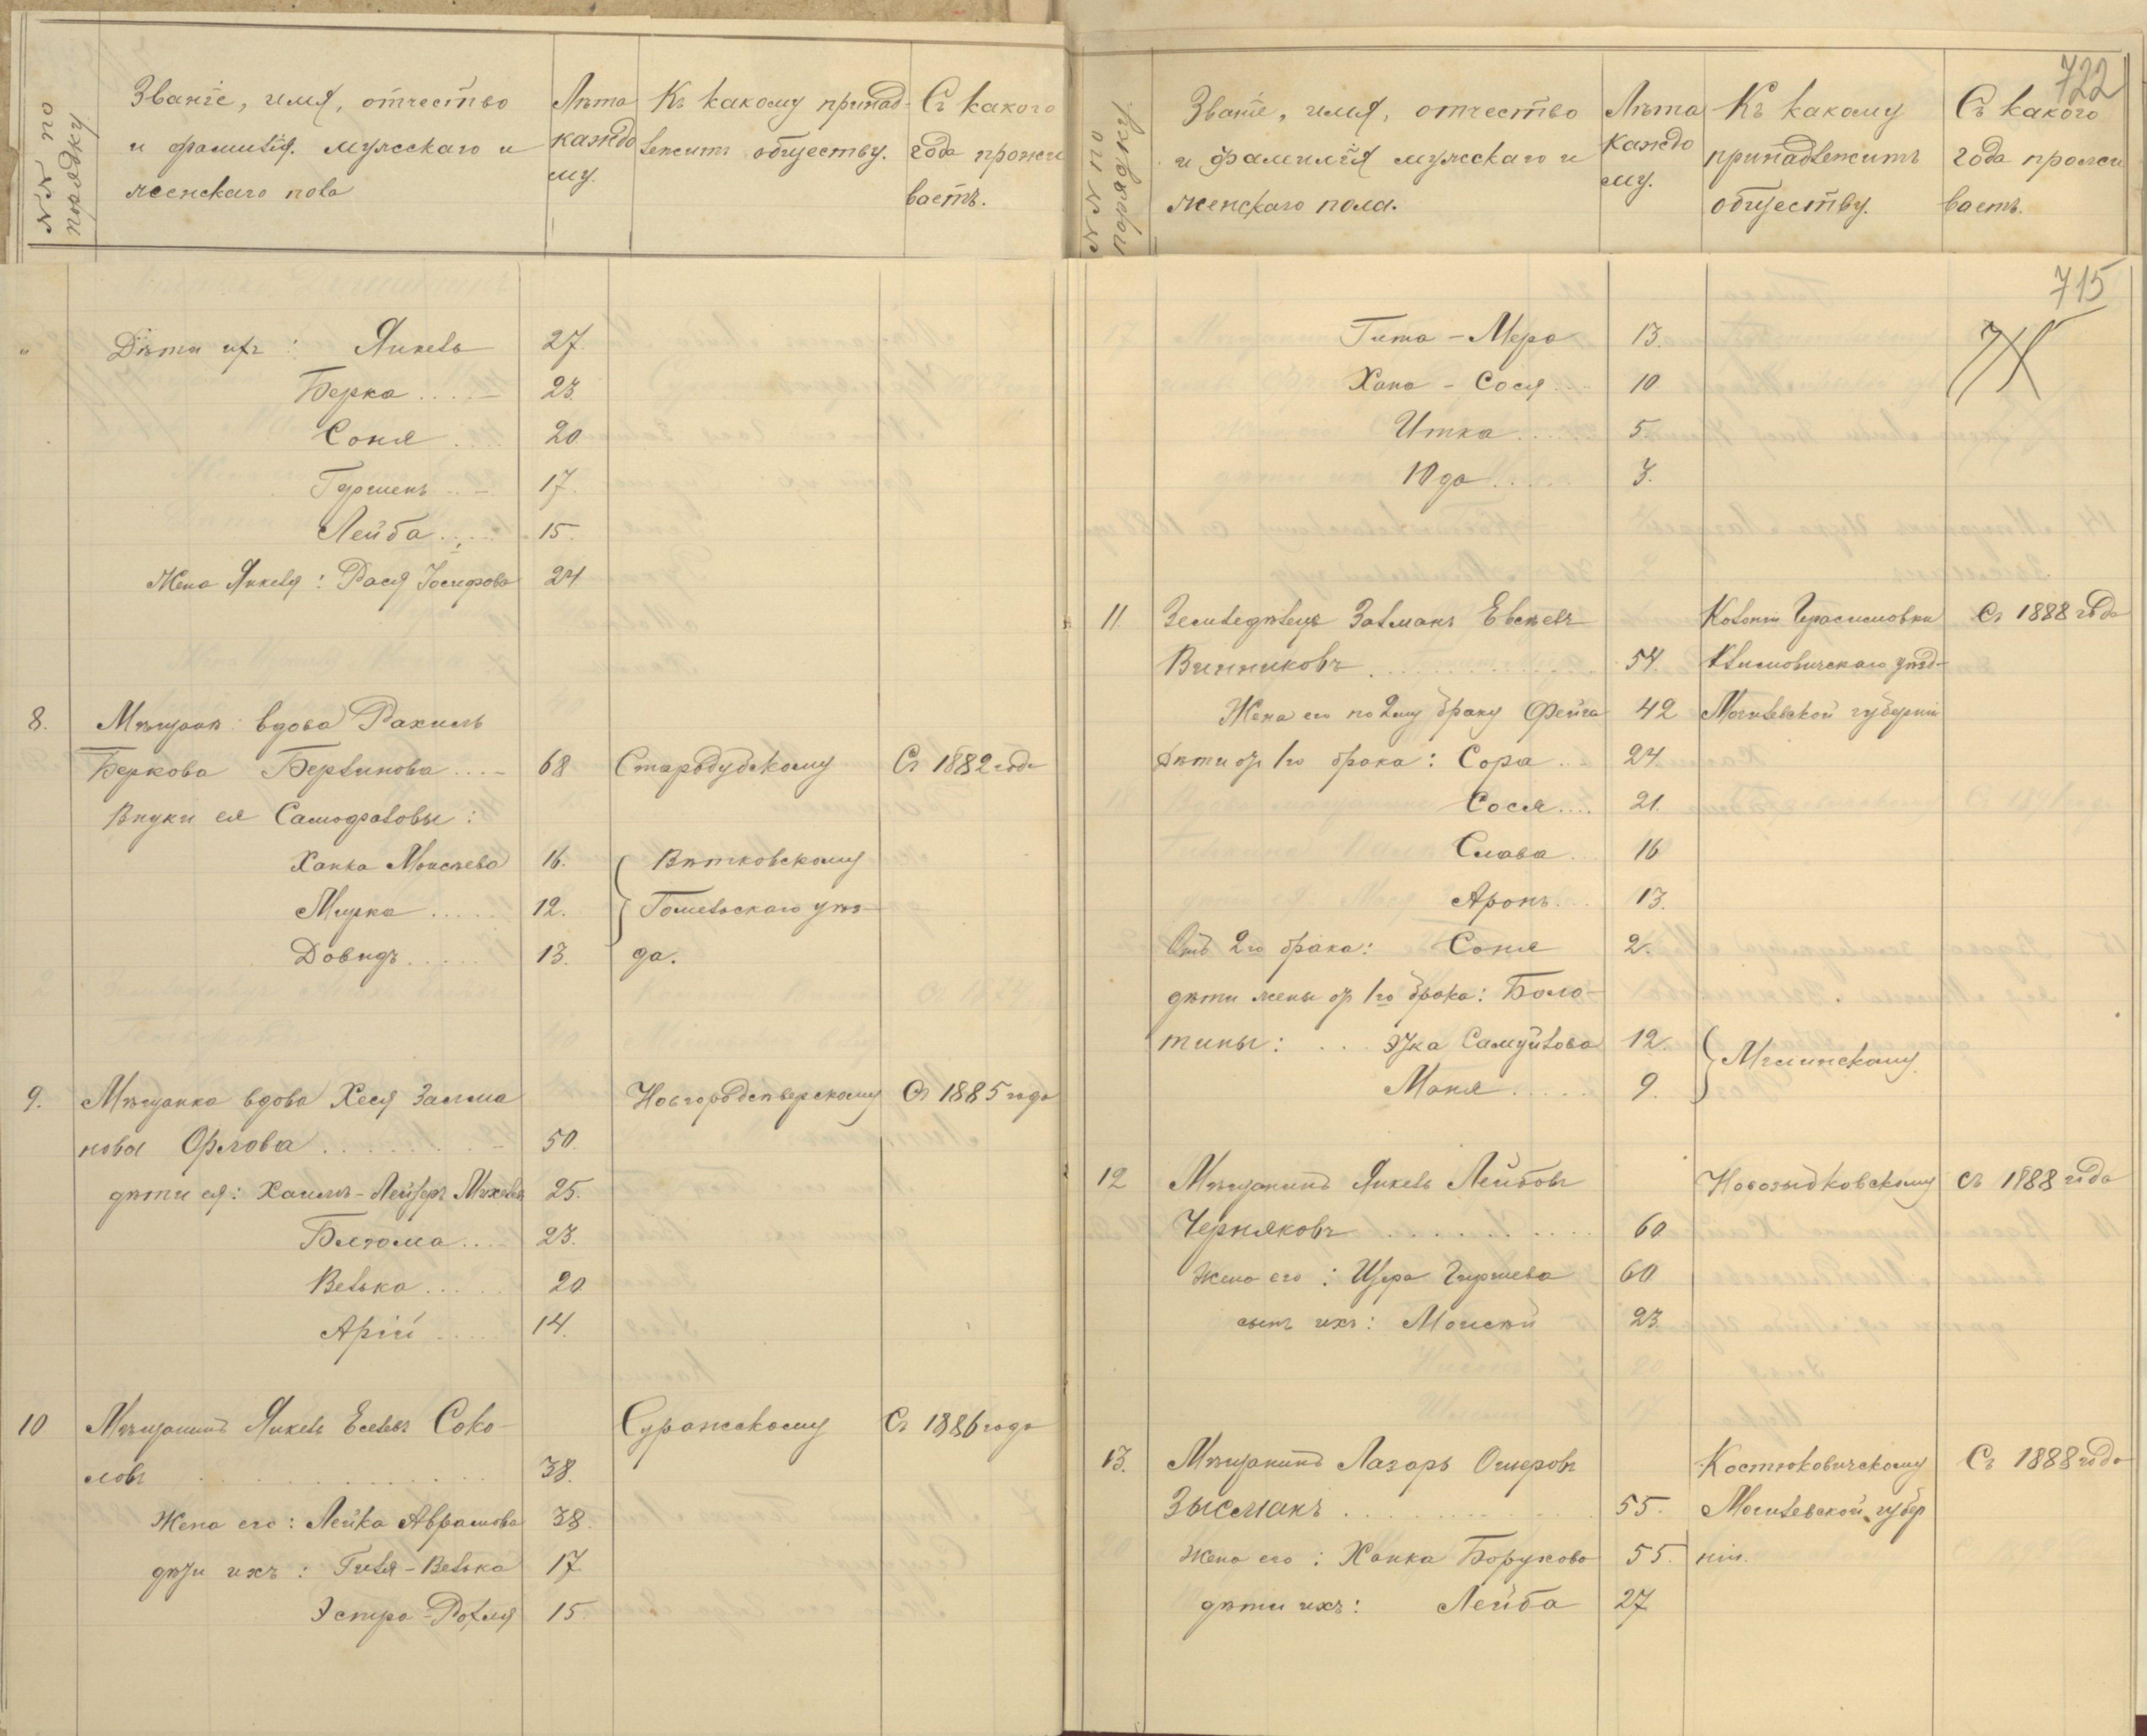 №№ по порядку
Званіе, имя, отчество
и фамилія мужскаго и
женскаго пола
Лѣта
каждо
му.
Къ какому принад-
лежитъ обществу.
Съ какого
года прожи
ваетъ.
"
Дѣти ихъ: Янкель 27.
Берка.... 23.
Соня... 20
Гершенъ... 17.
Лейба... 15.
Жена Янкеля: Рася Іосифова 24
8. Мѣщанк: вдова Рахиль
Беркова Берлинова.... 68 Стародубскому Съ 1882 года
Внуки ея Самофаловы:
Ханка Моисѣева 16. Вѣтковскому
Мирка..... 12. Гомельскаго уѣз-
Довидъ..... 13. да.
9. Мѣщанка вдова Хеся Залма Новгородсѣверскому Съ 1885 года
нова Орлова........ 50.
дѣти ея: Хаимъ-Лейзеръ 25.
Блюма.... 23.
Велька.... 20
Арій.... 14.
10 Мѣщанинъ Янкель Еселевъ Соко- Суражскому Съ 1886 года
ловъ.......... 38.
Жена его: Лейка Абрамова 38.
дѣти ихъ: Гиля-Велька 17
Эстра-Рохля 15.
722
№№ по порядку.
Званіе, имя, отчество
и фамилія мужскаго и
женскаго пола.
Лѣта
каждо
му.
Къ какому
принадлежитъ
обществу.
Съ какого
года прожи
ваетъ.
715
Гита-Мера 13.
Хана-Сося... 10
Итка..... 5.
Юда..... 3.
11 Земледѣлецъ Залманъ Евсѣевъ Колоніи Герасимовки Съ 1888 года
Винниковъ........... 54. Климовичскаго уѣзд-
Жена его по 2му браку Фейга 42 Могилевской губерніи
Дѣти отъ 1го брака: Сора... 24.
Сося.... 21.
Слава.. 16
Аронъ.. 13.
Отъ 2го брака: Соня 2.
дѣти жены отъ 1го брака: Боло-
тины: ... Эйка Самуйлова 12. Мглинскому
Маня..... 9.
12 Мѣщанинъ Янкель Лейбовъ Новозыбковскому съ 1888 года
Черняковъ.......... 60
Жена его: Цира Гиршева 60
сынъ ихъ: Моисѣй 23.
13. Мѣщанинъ Лазарь Ошеровъ Костюковичскому Съ 1888 года
Зысманъ........... 55. Могилевской губер
Жена его: Ханка Борухова 55. ніи.
дѣти ихъ: Лейба 27